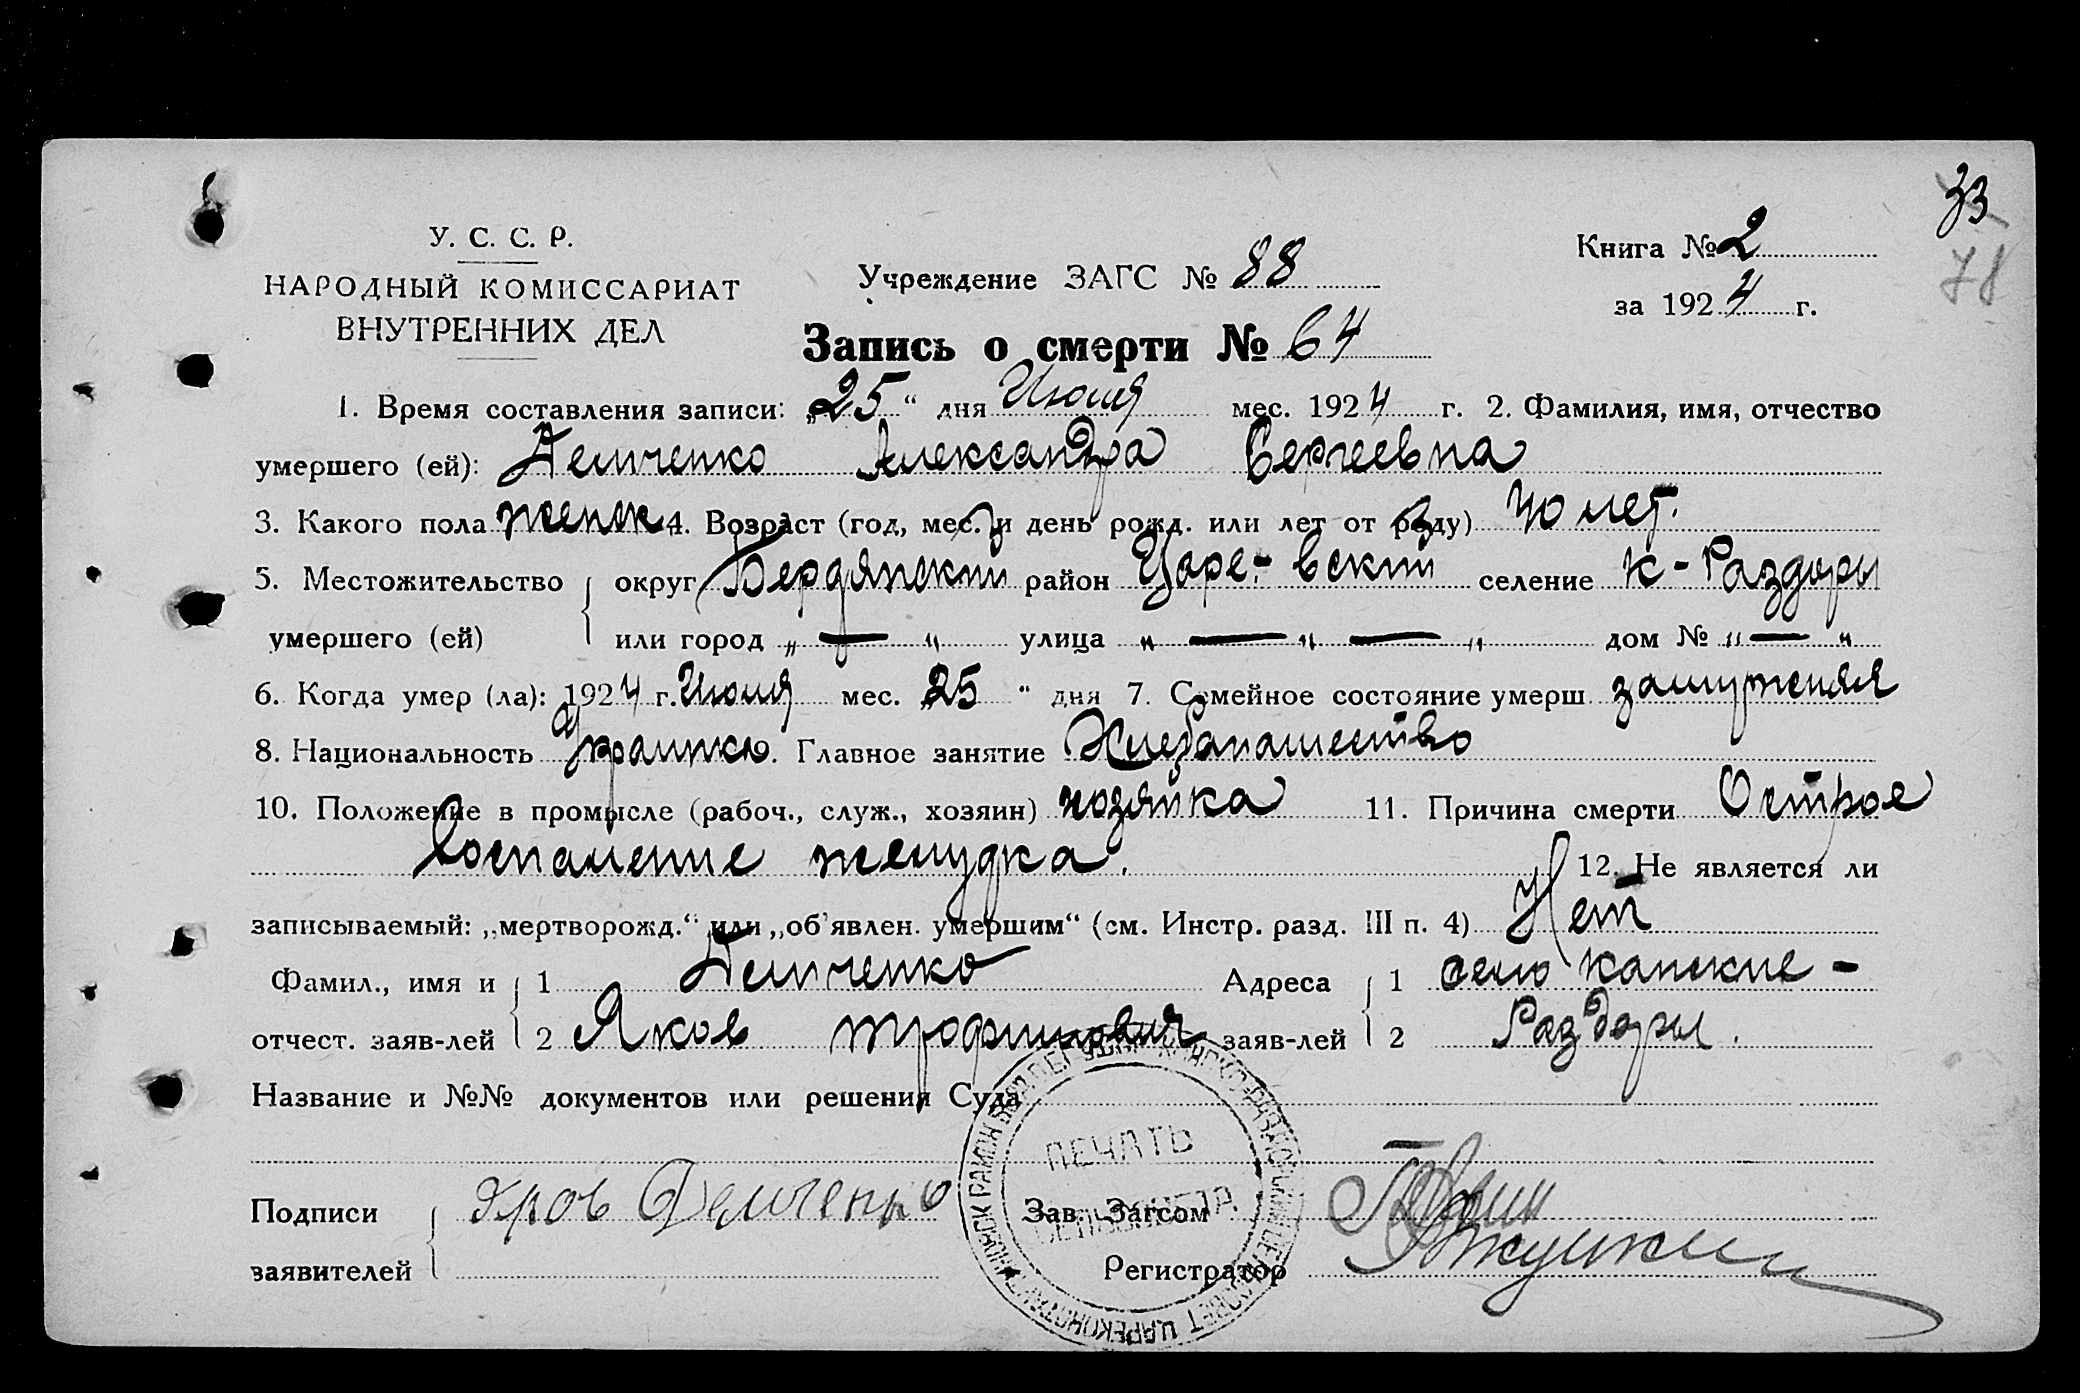 33
78
У. С. С. Р.
НАРОДНЫЙ КОМИССАРИАТ
ВНУТРЕННИХ ДЕЛ
Учреждение ЗАГС № 88
Книга № 2
за 1924 г.
Запись о смерти № 64
1. Время составления записи: „25“ дня Июля мес. 1924 г. 2. Фамилия, имя, отчество
умершего (ей): Демченко Александра Сергеевна
3. Какого пола женск 4. Возраст (год, мес. и день рожд. или лет от роду) 40 лет.
5. Местожительство округ Бердянский район Царе-вский селение К-Раздоры
умершего (ей) или город „ — “ улица „ — “ — “ дом № „ — “
6. Когда умер (ла): 1924 г. Июля мес. „25“ дня 7. Семейное состояние умерш. замужняя
8. Национальность Украинка 9. Главное занятие Хлебапашество
10. Положение в промысле (рабоч., служ., хозяин) хозяйка 11. Причина смерти Острое
Воспаление желудка. 12. Не является ли
записываемый: „мертворожд.“ или „об'явлен. умершим“ (см. Инстр. разд. III п. 4) Нет
Фамил., имя и 1 Демченко Адреса 1 село Канские -
отчест. заяв-лей 2 Яков Трофимович заяв-лей 2 Раздоры.
Название и №№ документов или решений Суда
ПЕЧАТЬ
СЕЛЬСОВЕТА
Подписи Яков Демченко Зав. Загсом
заявителей Регистратор